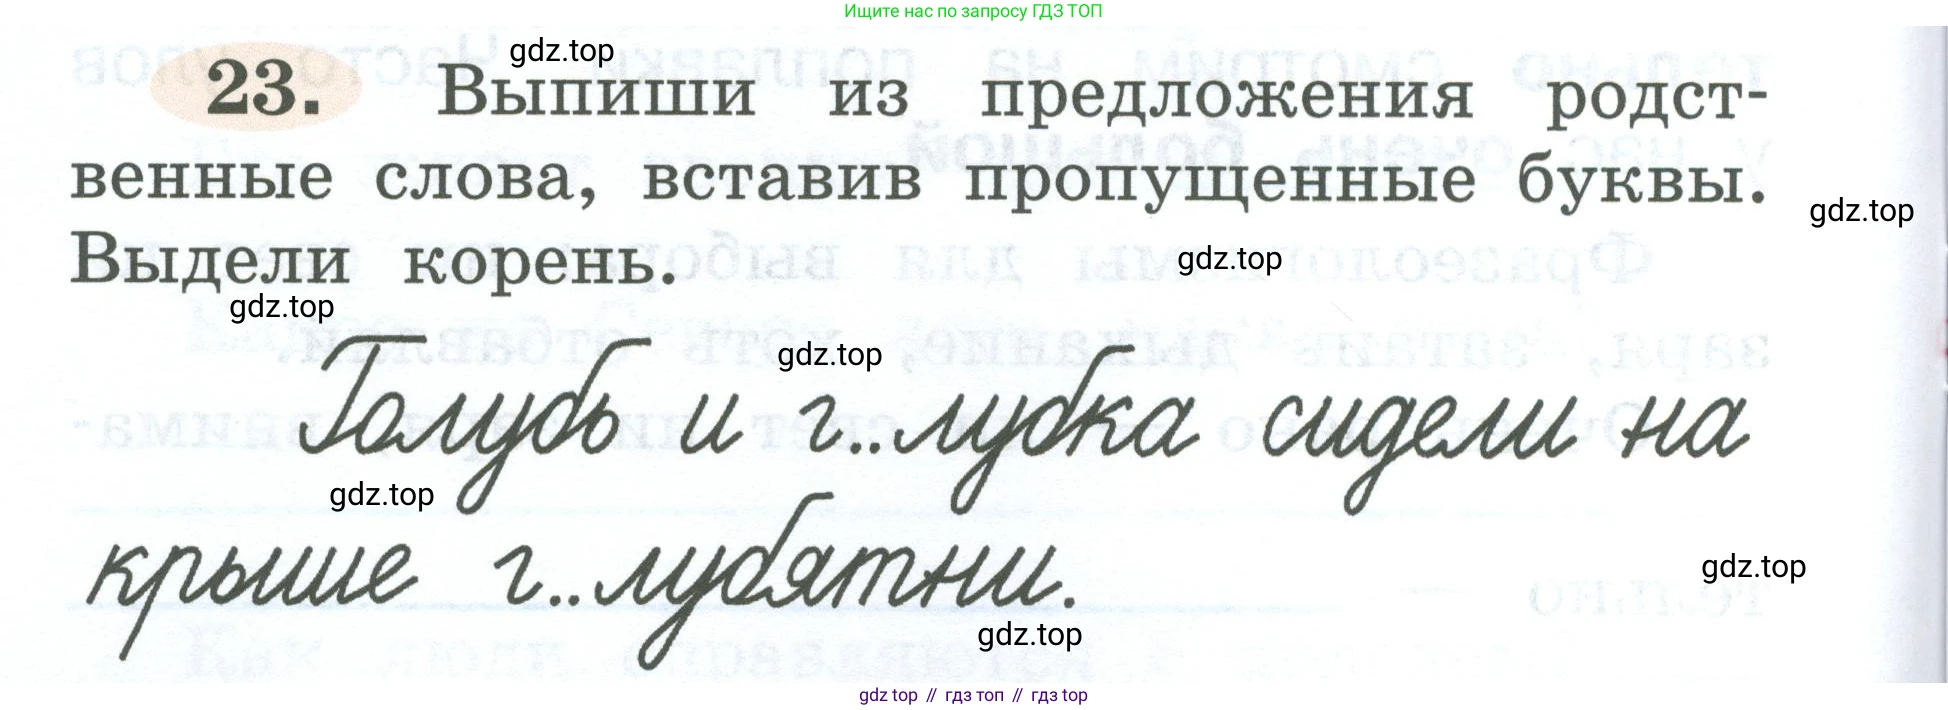 Ищите нас по запросу ГДЗ ТОП
gdz.top
23. Выпиши из предложения родст-
венные слова, вставив пропущенные буквы.
gdz.top
Выдели корень.
gdz.top
gdz.top
gdz.top
Голубь и г..лубка сидели на
gdz.top
крыше г..лубятни.
gdz.top
gdz.top
gdz top // гдз топ // гдз top